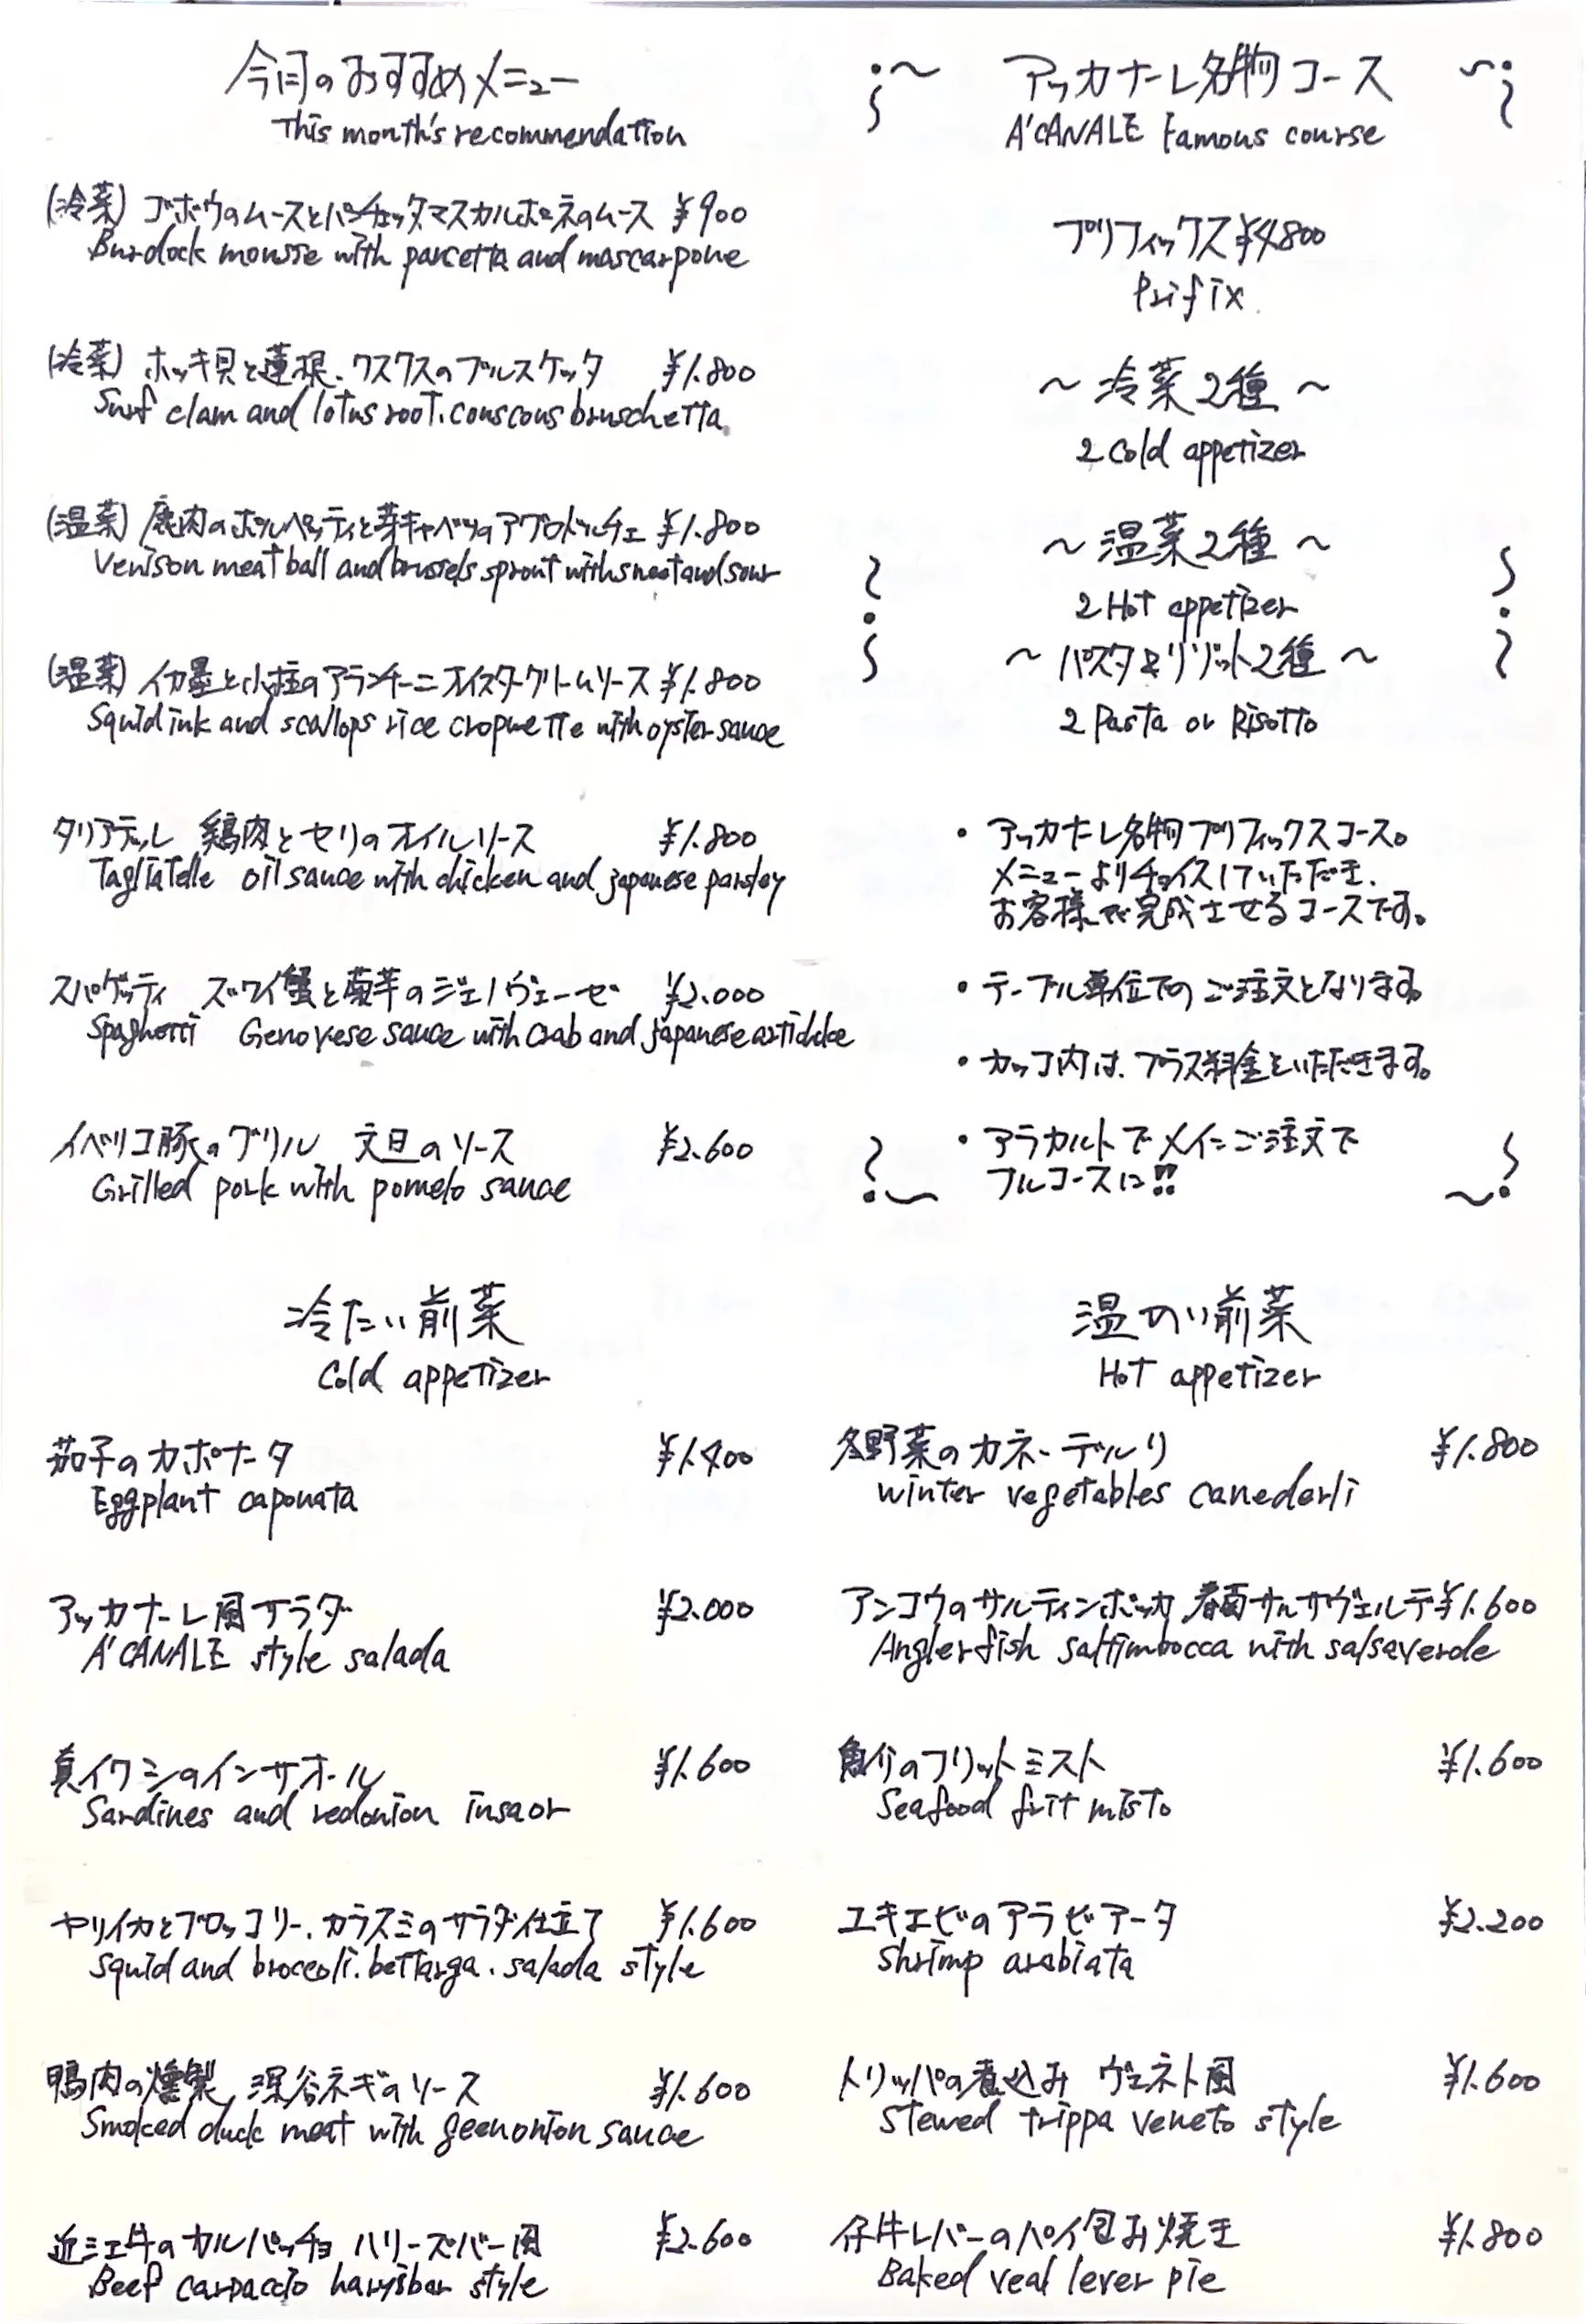 今月のおすすめメニュー
This month's recommendation
(冷菜) ゴボウのムースとパンチェッタマスカルポーネのムース ¥900
Burdock mousse with pancetta and mascarpone
(冷菜) ホッキ貝と蓮根、クスクスのブルスケッタ ¥1.800
Surf clam and lotus root.couscous bruschetta.
(温菜) 鹿肉のポルペッティと芽キャベツのアグロドルチェ ¥1.800
Venison meat ball and brussels sprout with sweet and sour
(温菜) イカ墨と小柱のアランチーニ オイスタークリームソース ¥1.800
Squid ink and scallops rice croquette with oyster sauce
タリアテッレ 鶏肉とセリのオイルソース ¥1.800
Tagliatelle oil sauce with chicken and japanese parsley
スパゲッティ ズワイ蟹と菊芋のジェノヴェーゼ ¥2.000
Spaghetti Genovese sauce with crab and japanese artichke
イベリコ豚のグリル 文旦のソース ¥2.600
Grilled pork with pomelo sauce
アッカナーレ名物コース
A'CANALE Famous course
プリフィックス ¥4.800
Prifix
～ 冷菜2種 ～
2 Cold appetizer
～ 温菜2種 ～
2 Hot appetizer
～ パスタ&リゾット2種 ～
2 Pasta or Risotto
・アッカナーレ名物プリフィックスコース。
メニューよりチョイスしていただき、
お客様で完成させるコースです。
・テーブル単位でのご注文となります。
・カッコ内は、プラス料金といただきます。
・アラカルトでメインご注文で
フルコースに!!
冷たい前菜
Cold appetizer
茄子のカポナータ ¥1.400
Eggplant caponata
アッカナーレ風サラダ ¥2.000
A'CANALE style salada
真イワシのインサオール ¥1.600
Sardines and redonion insaor
ヤリイカとブロッコリー、カラスミのサラダ仕立て ¥1.600
Squid and broccoli.bottarga.salada style
鴨肉の燻製 深谷ネギのソース ¥1.600
Smoked duck meat with geenonion sauce
近江牛のカルパッチョ ハリーズバー風 ¥2.600
Beef carpaccio harysbar style
温かい前菜
Hot appetizer
冬野菜のカネーデルリ ¥1.800
winter vegetables canederli
アンコウのサルティンボッカ 春菊サルサヴェルデ ¥1.600
Anglerfish saltimbocca with salsaverde
魚介のフリットミスト ¥1.600
Seafood frit misto
ユキエビのアラビアータ ¥2.200
Shrimp arabiata
トリッパの煮込み ヴェネト風 ¥1.600
Stewed trippa veneto style
仔牛レバーのパイ包み焼き ¥1.800
Baked veal lever pie